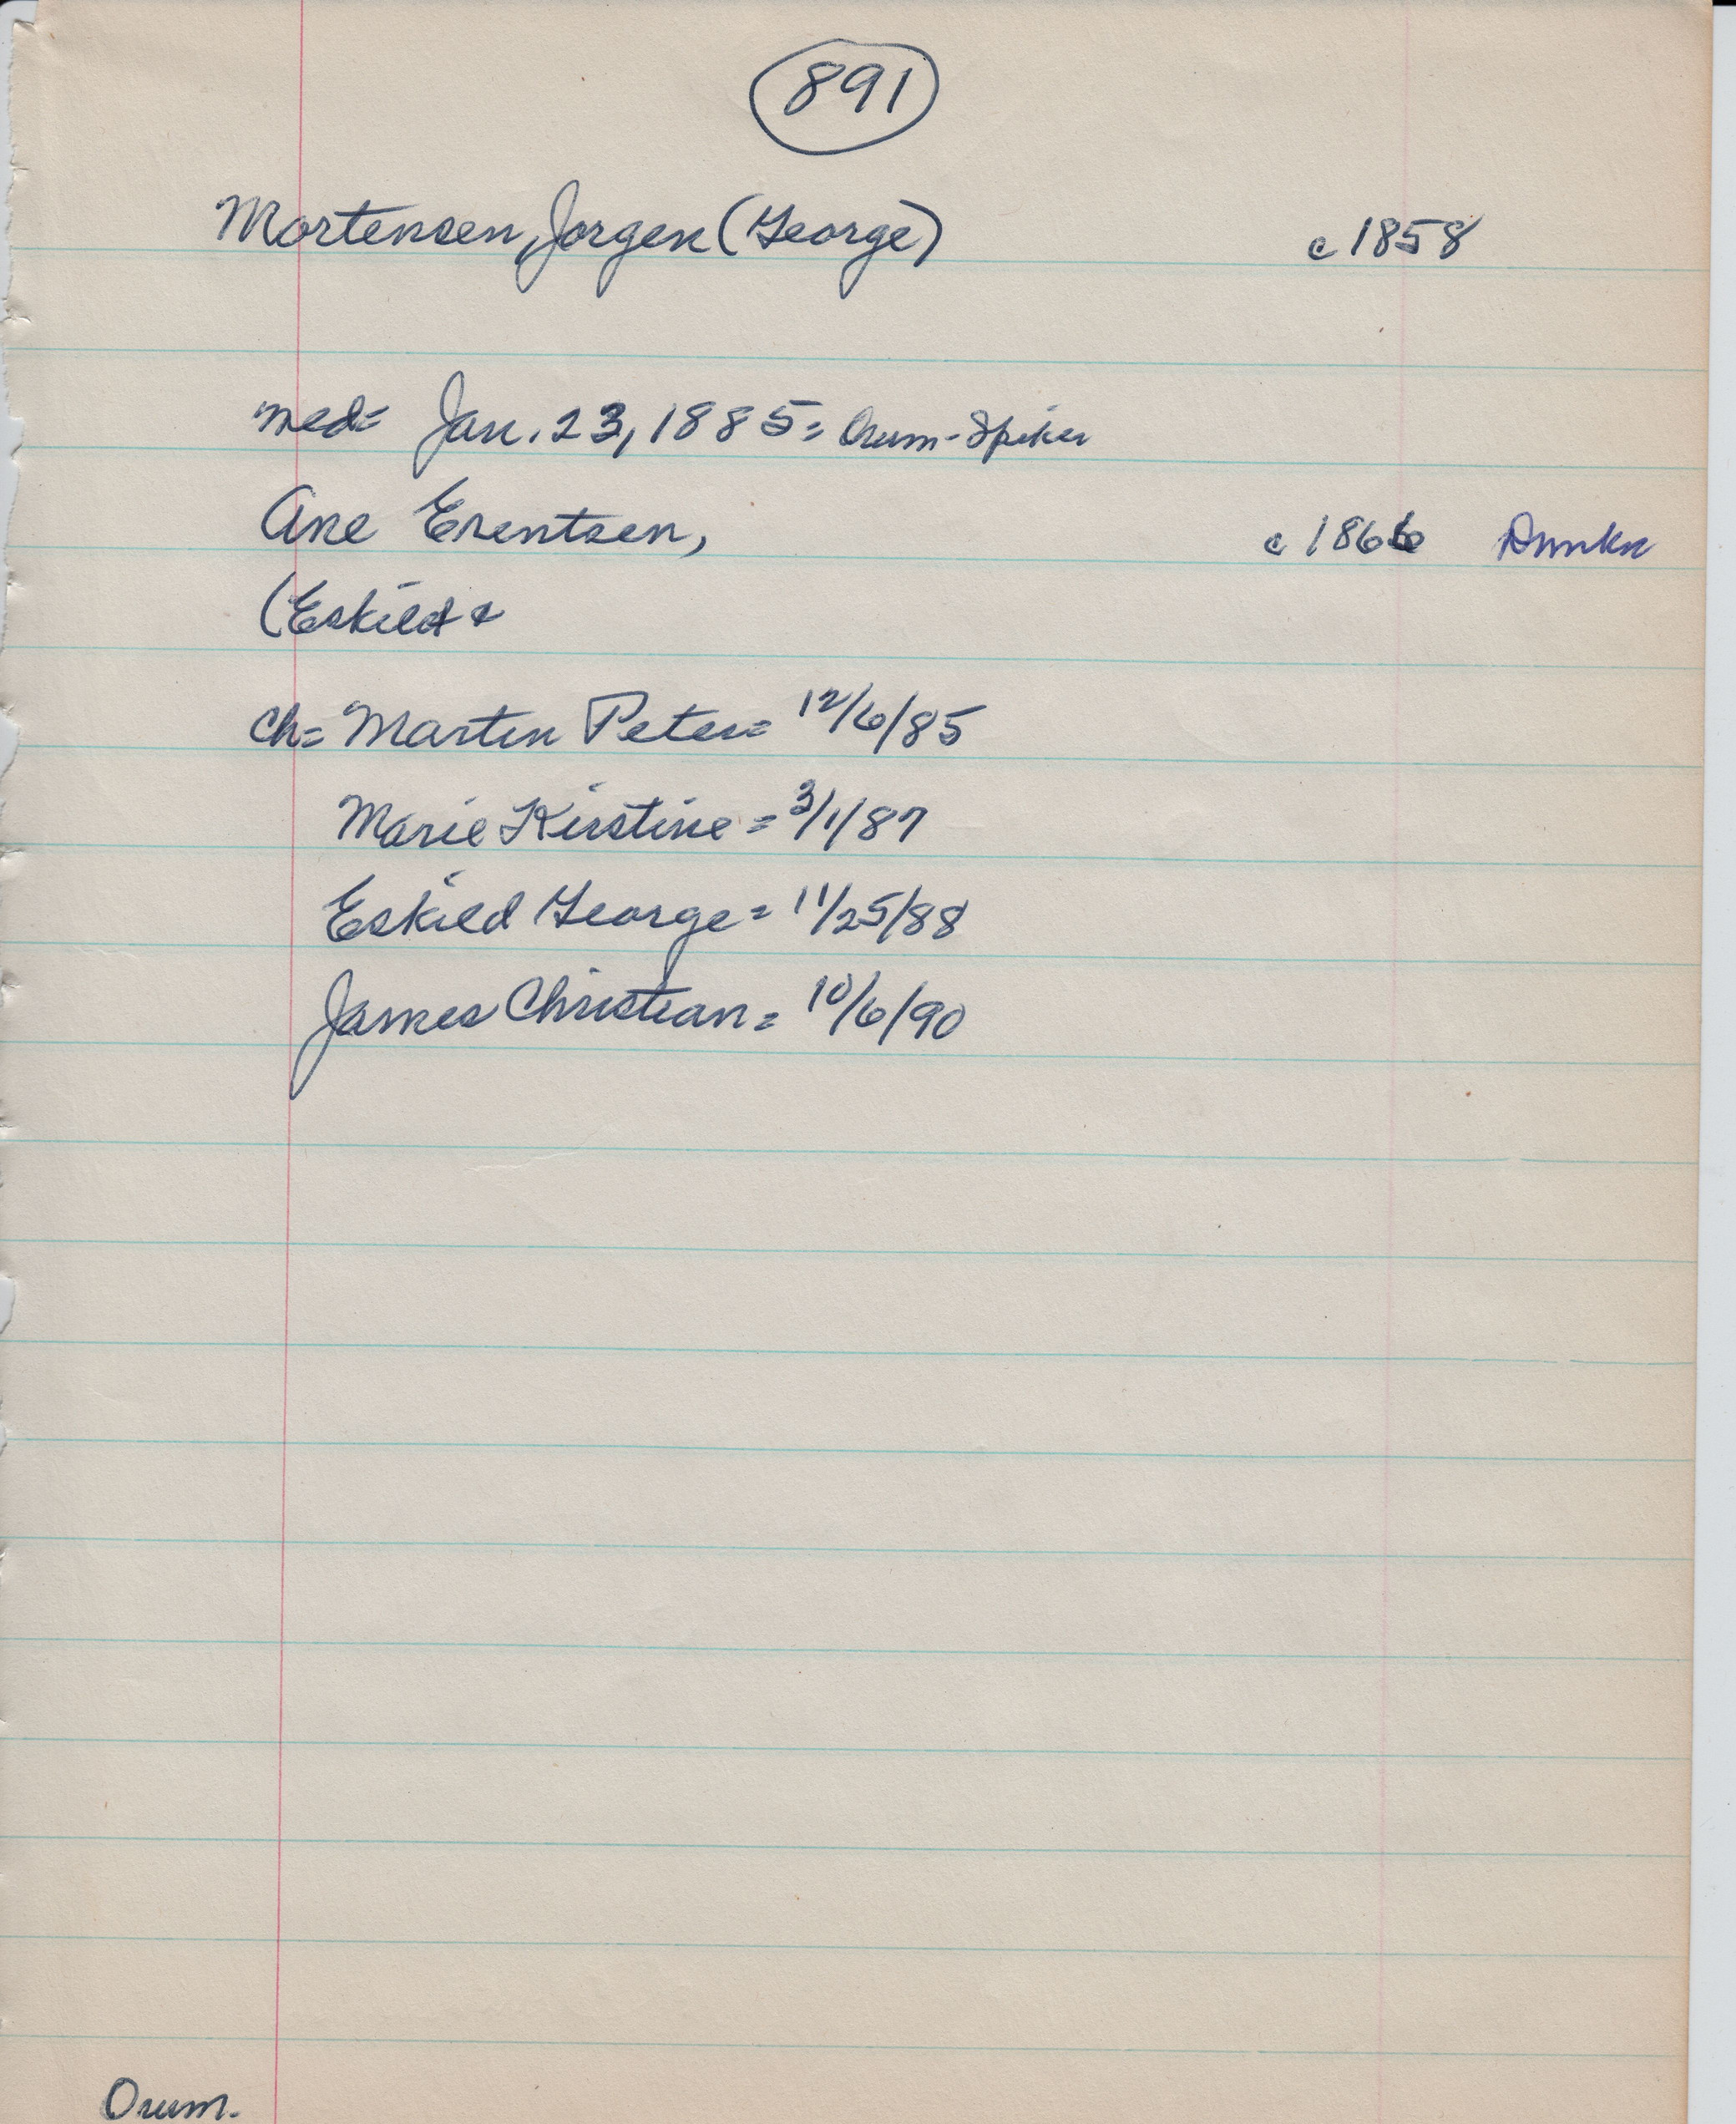 891
Mortensen, Jorgen (George) c 1858
med= Jan. 23, 1885= Orum-Spiker
Ane Erentsen, c 1866
(Eskild &
ch= Martin Peter= 12/6/85
Marie Kirstine = 3/1/87
Eskild George = 11/25/88
James Christian = 10/6/90
Orum.